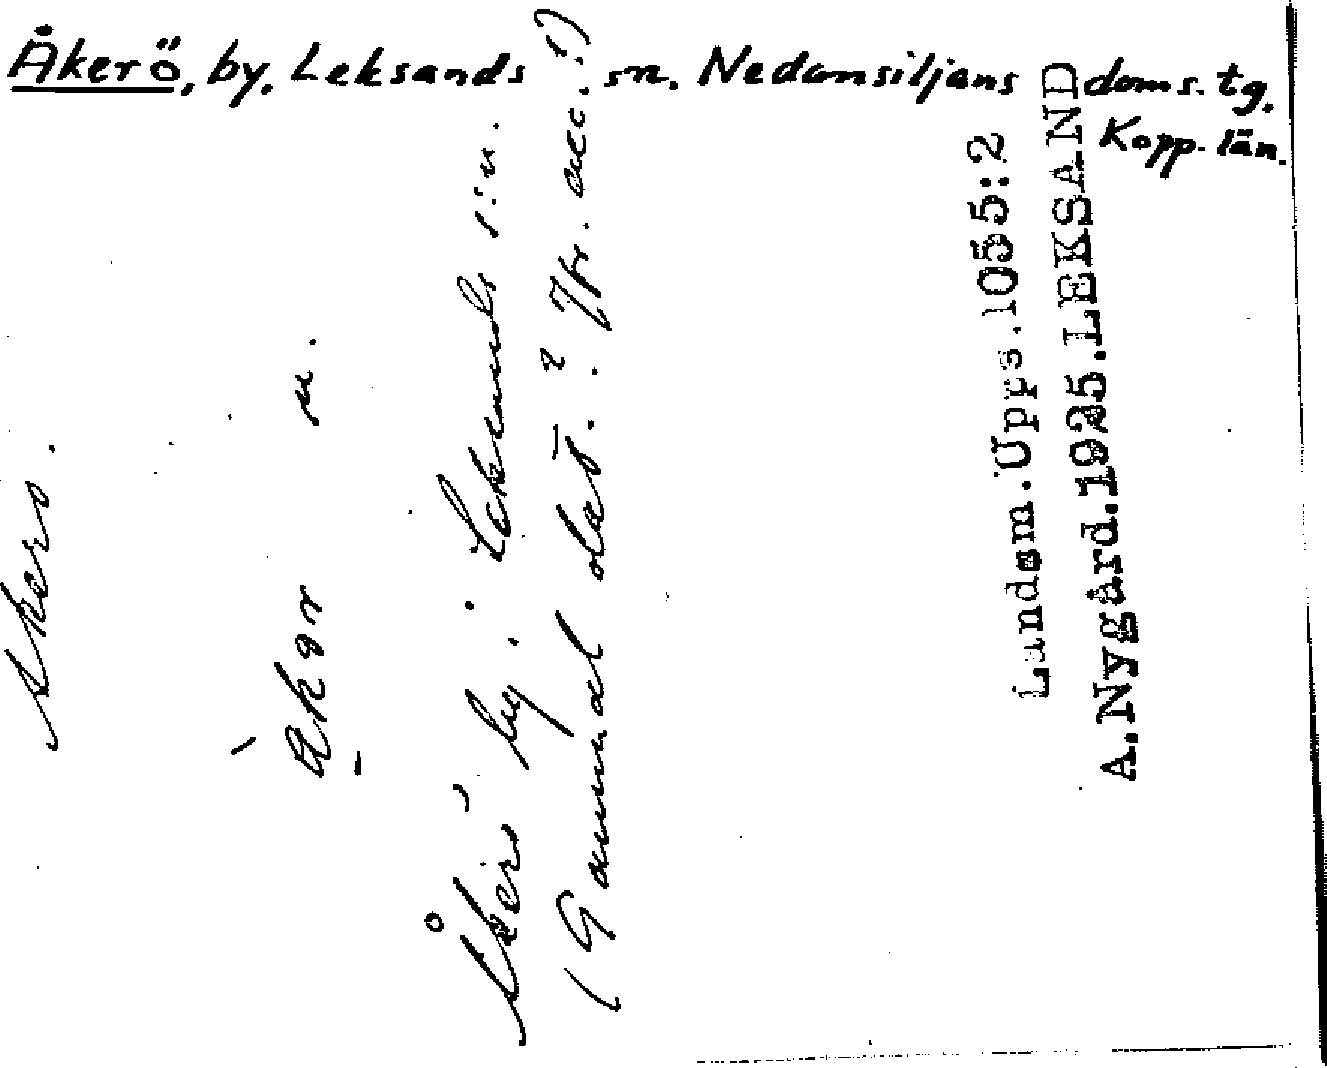 Åkerö, by, Leksands sn. Nedansiljans doms. tg.
Kopp. län.
Åkerö.
åkər n.
Åkerö by i Leksands s:n.
(Gammal dat.? Jfr. acc.!)
Landsm. Upps. 1055:2
A. Nygård. 1925. LEKSAND